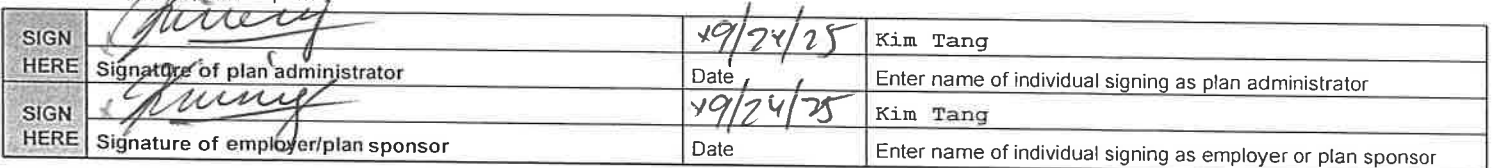 SIGN HERE x9/24/25 Kim Tang
Signature of plan administrator Date Enter name of individual signing as plan administrator
SIGN HERE x9/24/25 Kim Tang
Signature of employer/plan sponsor Date Enter name of individual signing as employer or plan sponsor